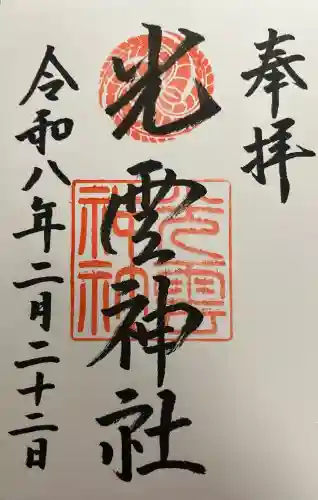 奉拝
光雲神社
光雲神社
令和八年二月二十二日